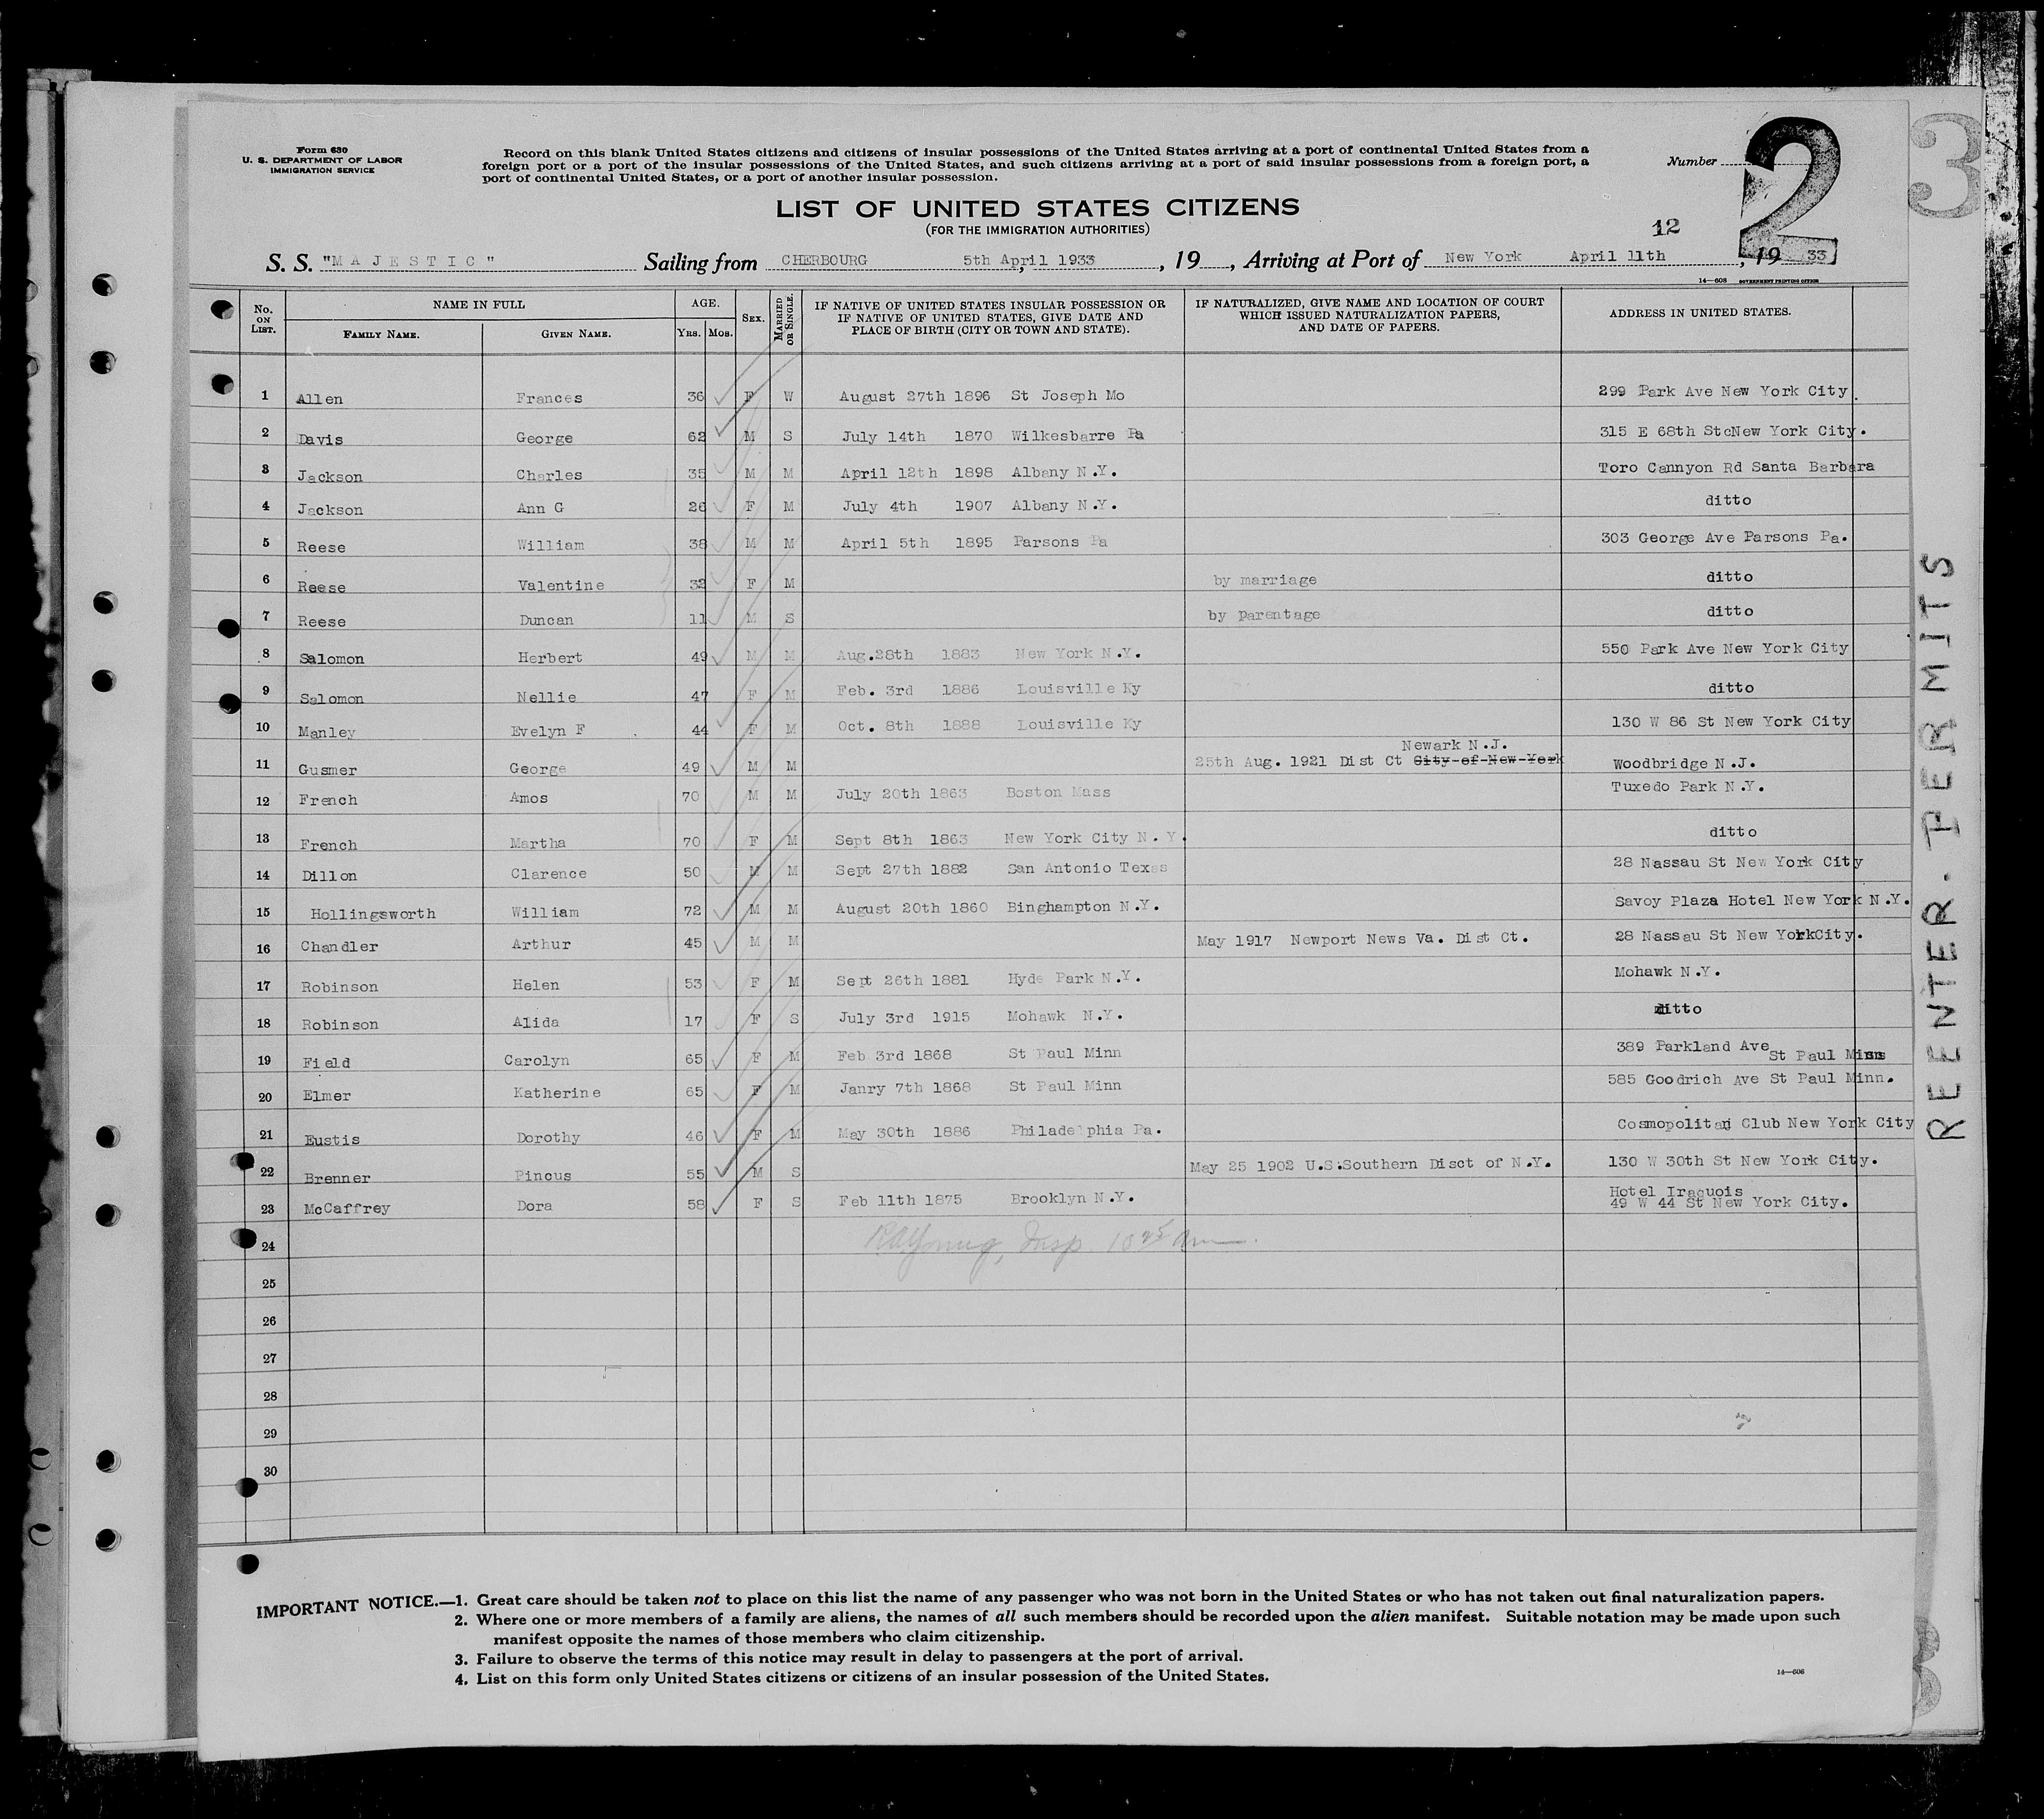 Form 630
U. S. DEPARTMENT OF LABOR
IMMIGRATION SERVICE
Record on this blank United States citizens and citizens of insular possessions of the United States arriving at a port of continental United States from a
foreign port or a port of the insular possessions of the United States, and such citizens arriving at a port of said insular possessions from a foreign port, a
port of continental United States, or a port of another insular possession.
Number 2
3
LIST OF UNITED STATES CITIZENS
(FOR THE IMMIGRATION AUTHORITIES)
12
S. S. "MAJESTIC" Sailing from CHERBOURG 5th April 1933, 19, Arriving at Port of New York April 11th, 1933
14—608 GOVERNMENT PRINTING OFFICE
No. ON LIST. NAME IN FULL FAMILY NAME. GIVEN NAME. AGE. YRS. MOS. SEX. MARRIED OR SINGLE. IF NATIVE OF UNITED STATES INSULAR POSSESSION OR IF NATIVE OF UNITED STATES, GIVE DATE AND PLACE OF BIRTH (CITY OR TOWN AND STATE). IF NATURALIZED, GIVE NAME AND LOCATION OF COURT WHICH ISSUED NATURALIZATION PAPERS, AND DATE OF PAPERS. ADDRESS IN UNITED STATES.
1 Allen Frances 36 F W August 27th 1896 St Joseph Mo 299 Park Ave New York City.
2 Davis George 62 M S July 14th 1870 Wilkesbarre Pa 315 E 68th StcNew York City.
3 Jackson Charles 35 M M April 12th 1898 Albany N.Y. Toro Cannyon Rd Santa Barbara
4 Jackson Ann G 26 F M July 4th 1907 Albany N.Y. ditto
5 Reese William 38 M M April 5th 1895 Parsons Pa 303 George Ave Parsons Pa.
6 Reese Valentine 32 F M by marriage ditto
7 Reese Duncan 11 M S by parentage ditto
8 Salomon Herbert 49 M M Aug.28th 1883 New York N.Y. 550 Park Ave New York City
9 Salomon Nellie 47 F M Feb. 3rd 1886 Louisville Ky ditto
10 Manley Evelyn F 44 F M Oct. 8th 1888 Louisville Ky 130 W 86 St New York City
Newark N.J.
11 Gusmer George 49 M M 25th Aug. 1921 Dist Ct City-of-New-York Woodbridge N.J.
12 French Amos 70 M M July 20th 1863 Boston Mass Tuxedo Park N.Y.
13 French Martha 70 F M Sept 8th 1863 New York City N.Y. ditto
14 Dillon Clarence 50 M M Sept 27th 1882 San Antonio Texas 28 Nassau St New York City
15 Hollingsworth William 72 M M August 20th 1860 Binghampton N.Y. Savoy Plaza Hotel New York N.Y.
16 Chandler Arthur 45 M M May 1917 Newport News Va. Dist Ct. 28 Nassau St New YorkCity.
17 Robinson Helen 53 F M Sept 26th 1881 Hyde Park N.Y. Mohawk N.Y.
18 Robinson Alida 17 F S July 3rd 1915 Mohawk N.Y. ditto
19 Field Carolyn 65 F M Feb 3rd 1868 St Paul Minn 389 Parkland Ave St Paul Minn
20 Elmer Katherine 65 F M Janry 7th 1868 St Paul Minn 585 Goodrich Ave St Paul Minn.
21 Eustis Dorothy 46 F M May 30th 1886 Philadelphia Pa. Cosmopolitan Club New York City
22 Brenner Pincus 55 M S May 25 1902 U.S.Southern Disct of N.Y. 130 W 30th St New York City.
Hotel Iraquois
23 McCaffrey Dora 58 F S Feb 11th 1875 Brooklyn N.Y. 49 W 44 St New York City.
24 Insp. 10 25 am
25
26
27
28
29
30
REENTER. PERMITS
IMPORTANT NOTICE.—1. Great care should be taken not to place on this list the name of any passenger who was not born in the United States or who has not taken out final naturalization papers.
2. Where one or more members of a family are aliens, the names of all such members should be recorded upon the alien manifest. Suitable notation may be made upon such
manifest opposite the names of those members who claim citizenship.
3. Failure to observe the terms of this notice may result in delay to passengers at the port of arrival.
4. List on this form only United States citizens or citizens of an insular possession of the United States.
14—608